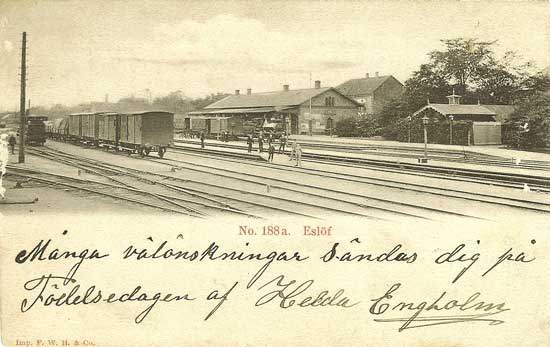 No. 188a. Eslöf
Många välönskningar sändas dig på
Födelsedagen af Helda Engholm
Imp. F. W. H. & Co.